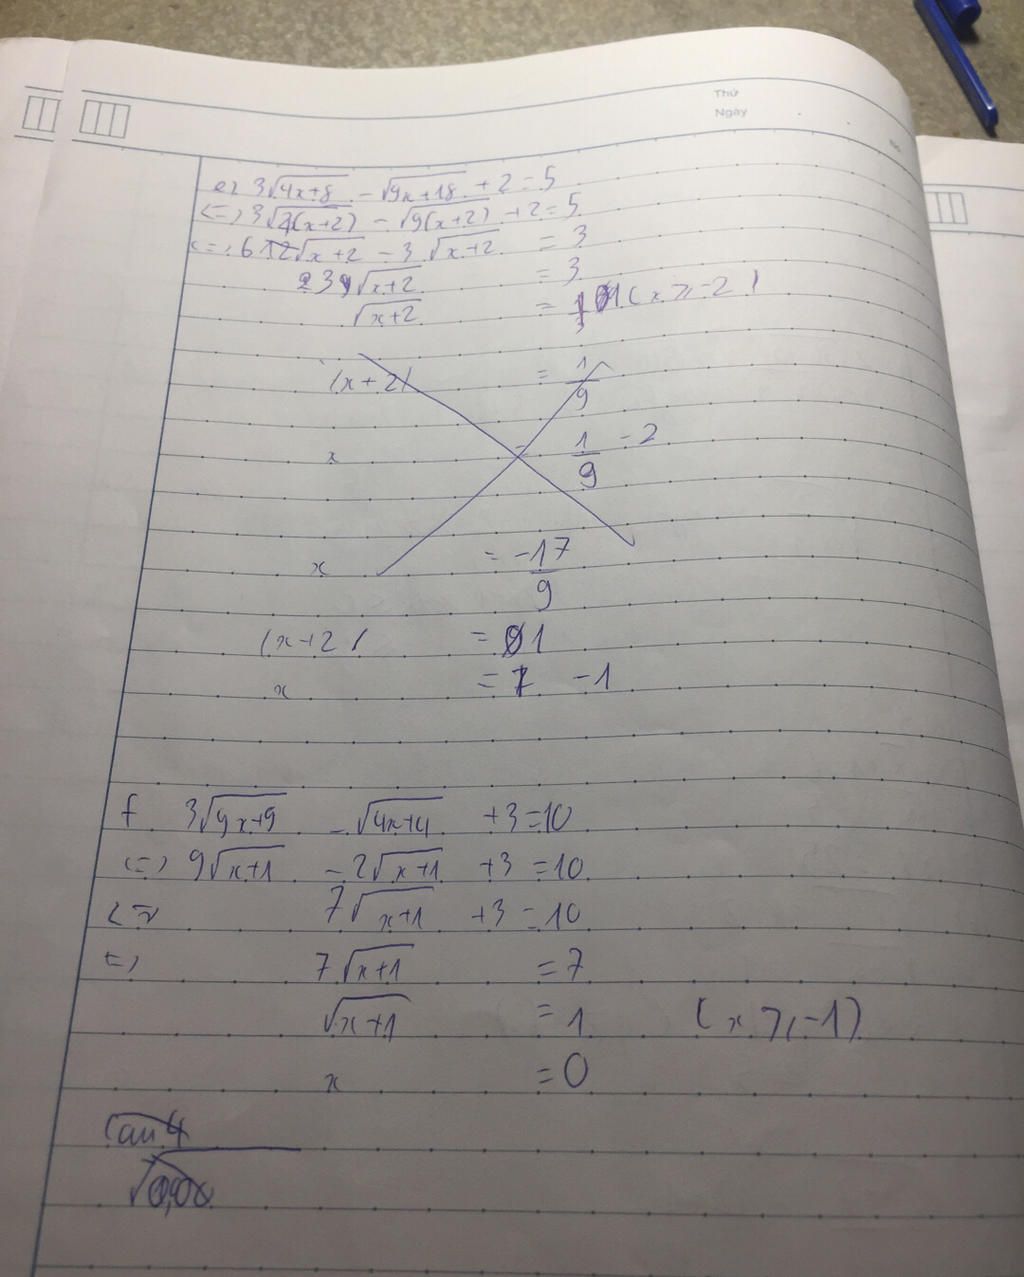 Thứ
Ngày
e) 3√(4x+8) - √(9x+18) + 2 = 5
<=> 3√(4(x+2)) - √(9(x+2)) + 2 = 5
<=> 6√(x+2) - 3√(x+2) = 3
3√(x+2) = 3
√(x+2) = 1 (x ⩾ -2)
(x+2) = 1/9
x = 1/9 - 2
x = -17/9
(x+2) = 1
x = -1
f 3√(9x+9) - √(4x+4) + 3 = 10
<=> 9√(x+1) - 2√(x+1) + 3 = 10
<=> 7√(x+1) + 3 = 10
=> 7√(x+1) = 7
√(x+1) = 1 (x ⩾ -1)
x = 0
Cau 4